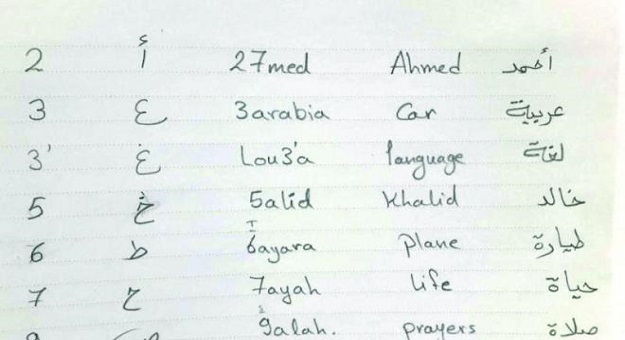 2 أ 27med Ahmed أحمد
3 ع 3arabia Car عربية
3' غ Lou3'a language لغة
5 خ 5alid Khalid خالد
6 ط 6ayara plane طيارة
7 ح 7ayah life حياة
9 ص 9alah. prayers صلاة